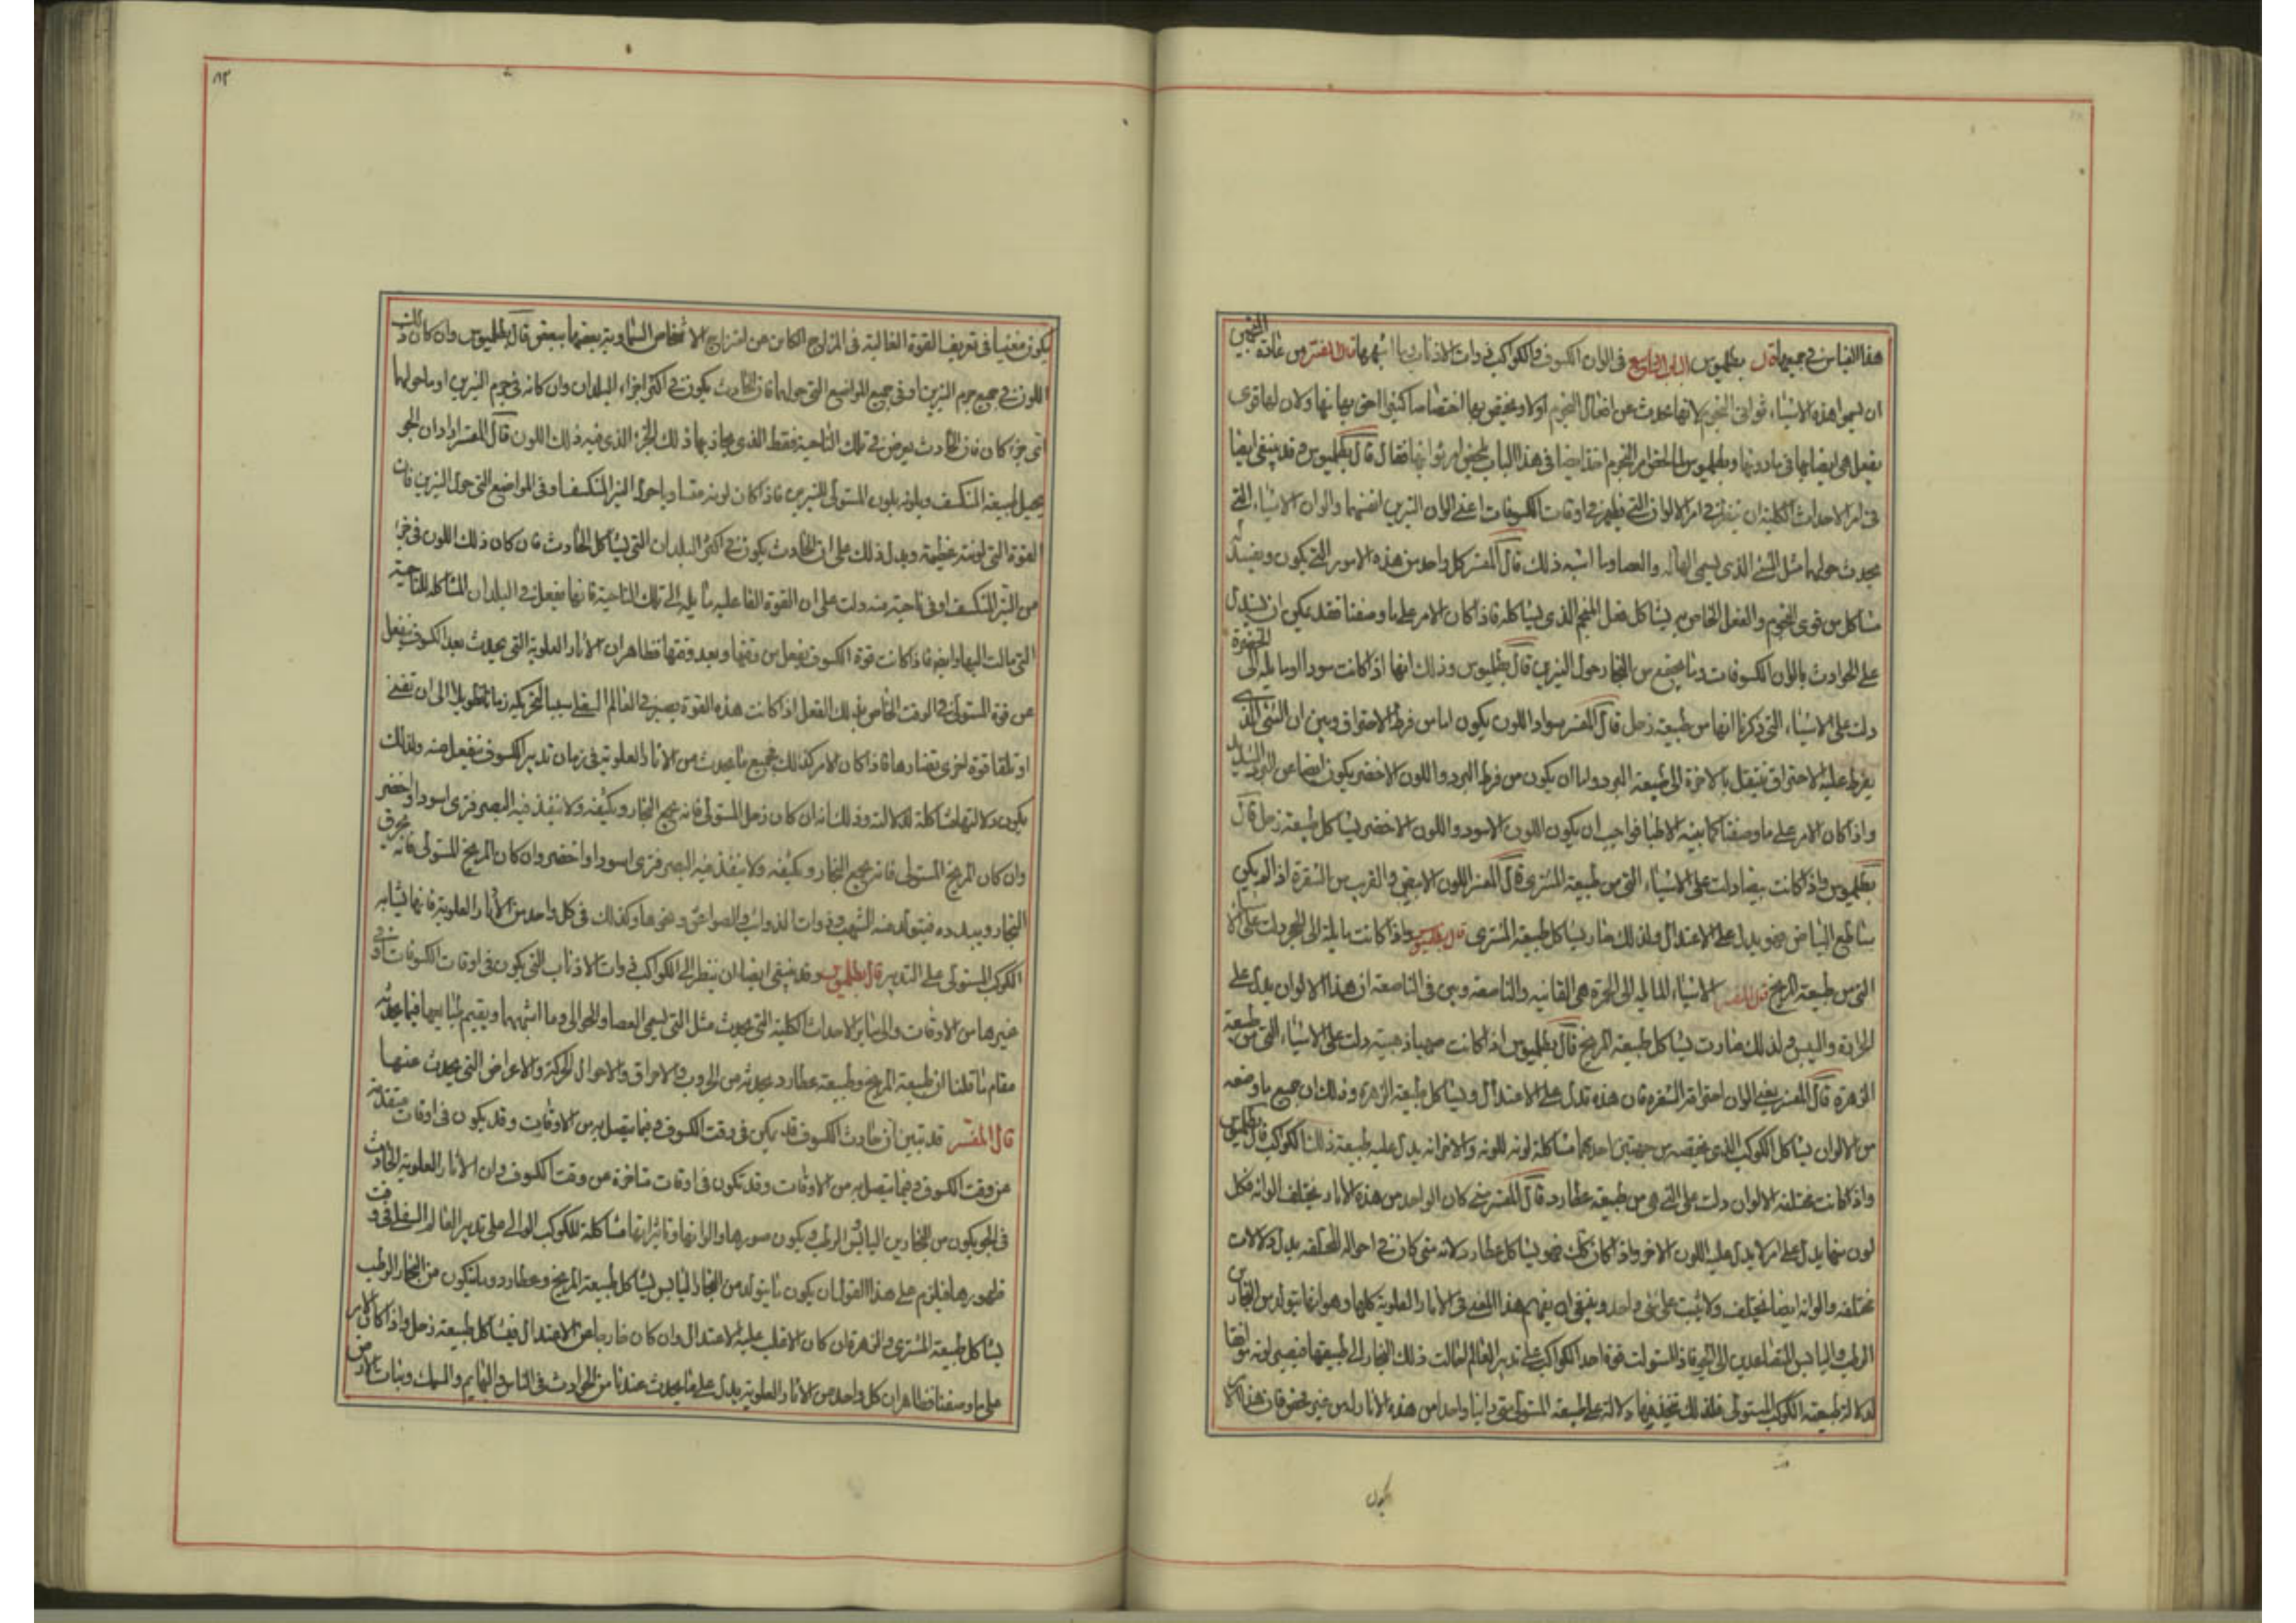 هذا القياس في جميعها قال بطلميوس الباب التاسع في الوان الكسوف والكواكب ذوات الاذناب وما اشبهها قال المفسر من عادة المنجمين
ان يسموا هذه الاشياء ثواني النجوم لانها تحدث عن افعال النجوم اولا ويختص بها اختصاصا كثيرا اعني بها نها ولان لها قوى
يفعل هي ايضا بها في ما دونها وبطلميوس لما لخص امر النجوم اخذ ايضا في هذا الباب تلخيص امر ثوانيها فقال قال بطلميوس وقد ينبغي ايضا
في امر الاحداث الكلية ان ينظر في امر الالوان التي تظهر في اوقات الكسوفات اعني الوان النيرين انفسهما والوان الاشياء التي
يحدث حولهما مثل الشي الذي يسمى الهالة والعصا وما اشبه ذلك قال المفسر كل واحد من هذه الامور التي يكون ويفسد
مشاكل من قوى النجوم والفعل الخاص به يشاكل فعل النجم الذي يشاكله فاذا كان الامر على ما وصفنا فقد يمكن ان يستدل
على الحوادث بالوان الكسوفات وما يجتمع من البخار حول النيرين قال بطلميوس وذلك انها اذا كانت سودا او ما يله الى الخضرة
دلت على الاشياء التي ذكرنا انها من طبيعة زحل قال المفسر سواد اللون يكون اما من فرط الاحتراق وبين ان الشي الذي
يفرط عليه الاحتراق ينتقل بالاخرة الى طبيعة البرد واما ان يكون من فرط البرد واللون الاخضر يكون ايضا عن البرد الشديد
واذا كان الامر على ما وصفنا كما بينه الاطبا فواجب ان يكون اللون الاسود واللون الاخضر يشاكل طبيعة زحل قال
بطلميوس واذا كانت بيضا دلت على الاشياء التي من طبيعة المشتري قال المفسر اللون الابيض والقريب من الشقرة اذا لم يكن
ساطع البياض فهو يدل على الاعتدال ولذلك صار يشاكل طبيعة المشتري قال بطلميوس واذا كانت مايلة الى الحمرة دلت على الاشيا
التي من طبيعة المريخ قال المفسر الاشياء المايله الى الحمرة هي القانيه والناصعه وبين في الناصعة ان هذا الالوان يدل على
الحرارة واليبس ولذلك صارت يشاكل طبيعة المريخ قال بطلميوس اذا كانت صهبا ذهبية دلت على الاشياء التي من طبيعة
الزهرة قال المفسر يعني الوان احتراقه الشقرة فان هذه تدل على الاعتدال ويشاكل طبيعة الزهرة وذلك ان جميع ما وصفه
من الالوان يشاكل الكوكب الذي يخصه من جهتين احدهما مشاكلة لونه للونه والاخر انه يدل عليه طبيعة ذلك الكوكب قال بطلميوس
واذا كانت مختلفه الالوان دلت على التي هي من طبيعة عطارد قال المفسر متى كان الواحد من هذه الاثار يختلف الوانه فكل
لون منها يدل على امر لا يدل عليه اللون الاخر واذا كان كذلك فهو يشاكل عطارد لانه متى كان في احواله المختلفه يدل دلالات
مختلفه والوانه ايضا يختلف ولا يثبت على شي واحد وينبغي ان يفهم هذا المعنى في الاثار العلوية كلها وهو انها يتولد من البخارين
الرطب واليابس المتصاعدين الى الجو فاذا استولت قوة احد الكواكب على تدبير العالم احالت ذلك البخار الى طبيعتها فيصير لونه موافقا
لدلالة طبيعة الكوكب المستولي فلذلك نتخذ منها دلالة على طبيعة المستولي متى راينا واحدا من هذه الاثار لمن غير فحص فان هذا
يكون
يكون مغنيا في تعريف القوة الغالبة في المزاج الكاين عن امتزاج الاشخاص السماوية بعضها ببعض قال بطلميوس وان كان ذلك
اللون في جميع جرم النيرين او في جميع المواضع التي حولهما فان الحادث يكون في اكثر اجزاء البلدان وان كانه في جرم النيرين او ما حولهما
اي جزء كان فان الحادث يعرض في تلك الناحية فقط الذي يحاذيها ذلك الجزء الذي فيه ذلك اللون قال المفسر اراد ان الجو
يحيل طبيعة المنكسف ويلونه بلون المستولي للنيرين فاذا كان لونه متساويا حول النير المنكسف وفي المواضع التي حول النيرين فان
القوة التي لونته عظيمة ويدل ذلك على ان الحادث يكون في اكثر البلدان التي يشاكل الحادث فان كان ذلك اللون في جزء
من النير المنكسف او في ناحية منه دلت على ان القوة الفاعليه مايله الى تلك الناحية فانها تفعل في البلدان المشاكله للناحية
التي مالت اليها وايضا فاذا كانت قوة الكسوف تفعل من وقتها وبعد وقتها فظاهر ان الاثار العلوية التي يحدث بعد الكسوف يفعل
عن قوة المستولي في الوقت الخاص بذلك الفعل اذا كانت هذه القوة يصير في العالم السفلي سببا لتحريكه زمانا طويلا الى ان تفنى
او تلقا قوة اخرى تضادها فاذا كان الامر كذلك فجميع ما يحدث من الاثار العلوية في زمان تدبير الكسوف ينفعل منه ولذلك
يكون دلالتها مشاكلة لدلالته وذلك انه ان كان زحل المستولي فانه يجمع البخار ويكثفه ولا ينفذ فيه البصر فترى اسود او اخضر
وان كان المريخ المستولي فانه يجمع البخار ويكثفه ولا ينفذ فيه البصر فترى اسودا او اخضر وان كان المريخ المستولي فانه يحرق
البخار ويبدده فيتولد منه الشهب وذوات الذوائب والصواعق ونحوها وكذلك في كل واحد من الاثار العلوية فانها يشابه
الكوكب المستولي على التدبير قال بطلميوس وقد ينبغي ايضا ان ينظر الى الكواكب ذوات الاذناب التي يكون في اوقات الكسوفات او في
غيرها من الاوقات والى ساير الاحداث الكلية التي يحدث مثل التي يسمى العصا والحوالي وما اشبهها ويقيم قياسها فيما يحدثه
مقام ما قلنا ان طبيعة المريخ وطبيعة عطارد يحدثه من الحروب والاحراق والاحوال الحركة والاعراض التي يحدث عنها
قال المفسر قد تبين ان حادث الكسوف قد يمكن في وقت الكسوف وفيما يتصل به من الاوقات وقد يكون في اوقات متقدمه
عن وقت الكسوف وفيما يتصل به من الاوقات وقد تكون في اوقات متاخرة عن وقت الكسوف وان الاثار العلوية الحادث
في الجو يكون من البخارين اليابس والرطب ويكون صورها والوانها وتاثيراتها مشاكلة للكوكب الوالي على تدبير العالم السفلي في وقت
ظهورها فيلزم على هذا القول ان يكون ما يتولد من البخار اليابس يشاكل طبيعة المريخ وعطارد وما يتكون من البخار الرطب
يشاكل طبيعة المشتري والزهرة ان كان الاغلب عليه الاعتدال وان كان خارجا عن الاعتدال فيشاكل طبيعة زحل واذا كان الامر
على ما وصفنا فظاهر ان كل واحد من الاثار العلوية يدل على ما يحدث عندنا من الحوادث في الناس والبهايم والسمك ونبات الارض